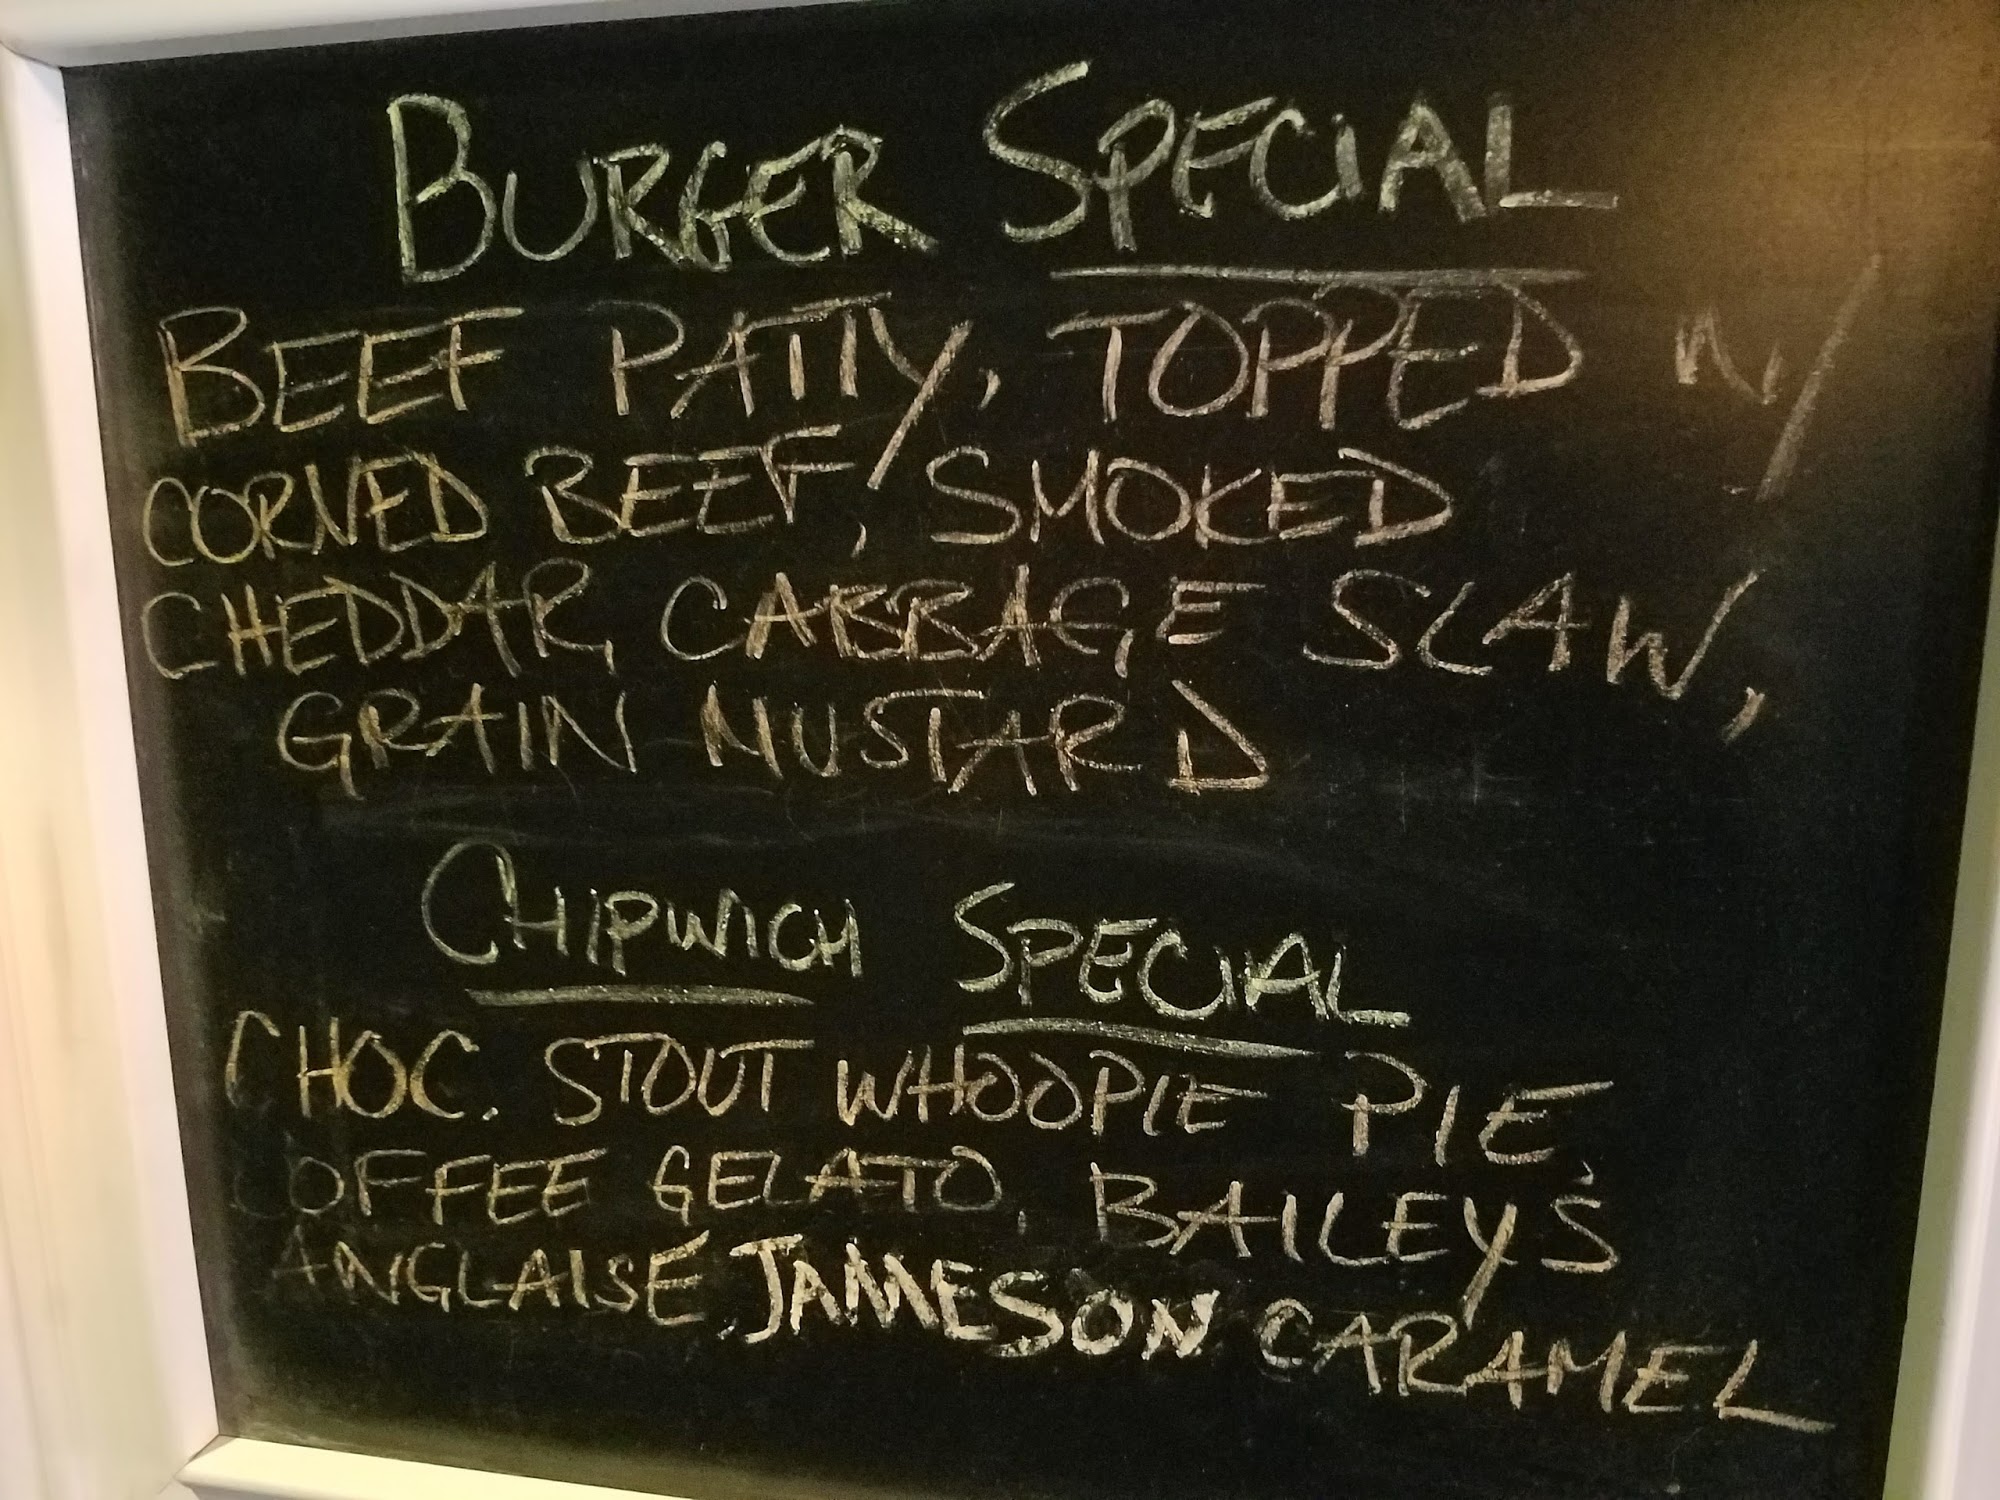 BURGER SPECIAL
BEEF PATTY, TOPPED W/
CORNED BEEF, SMOKED
CHEDDAR, CABBAGE SLAW,
GRAIN MUSTARD
CHIPWICH SPECIAL
CHOC. STOUT WHOOPIE PIE,
COFFEE GELATO, BAILEY'S
ANGLAISE, JAMESON CARAMEL